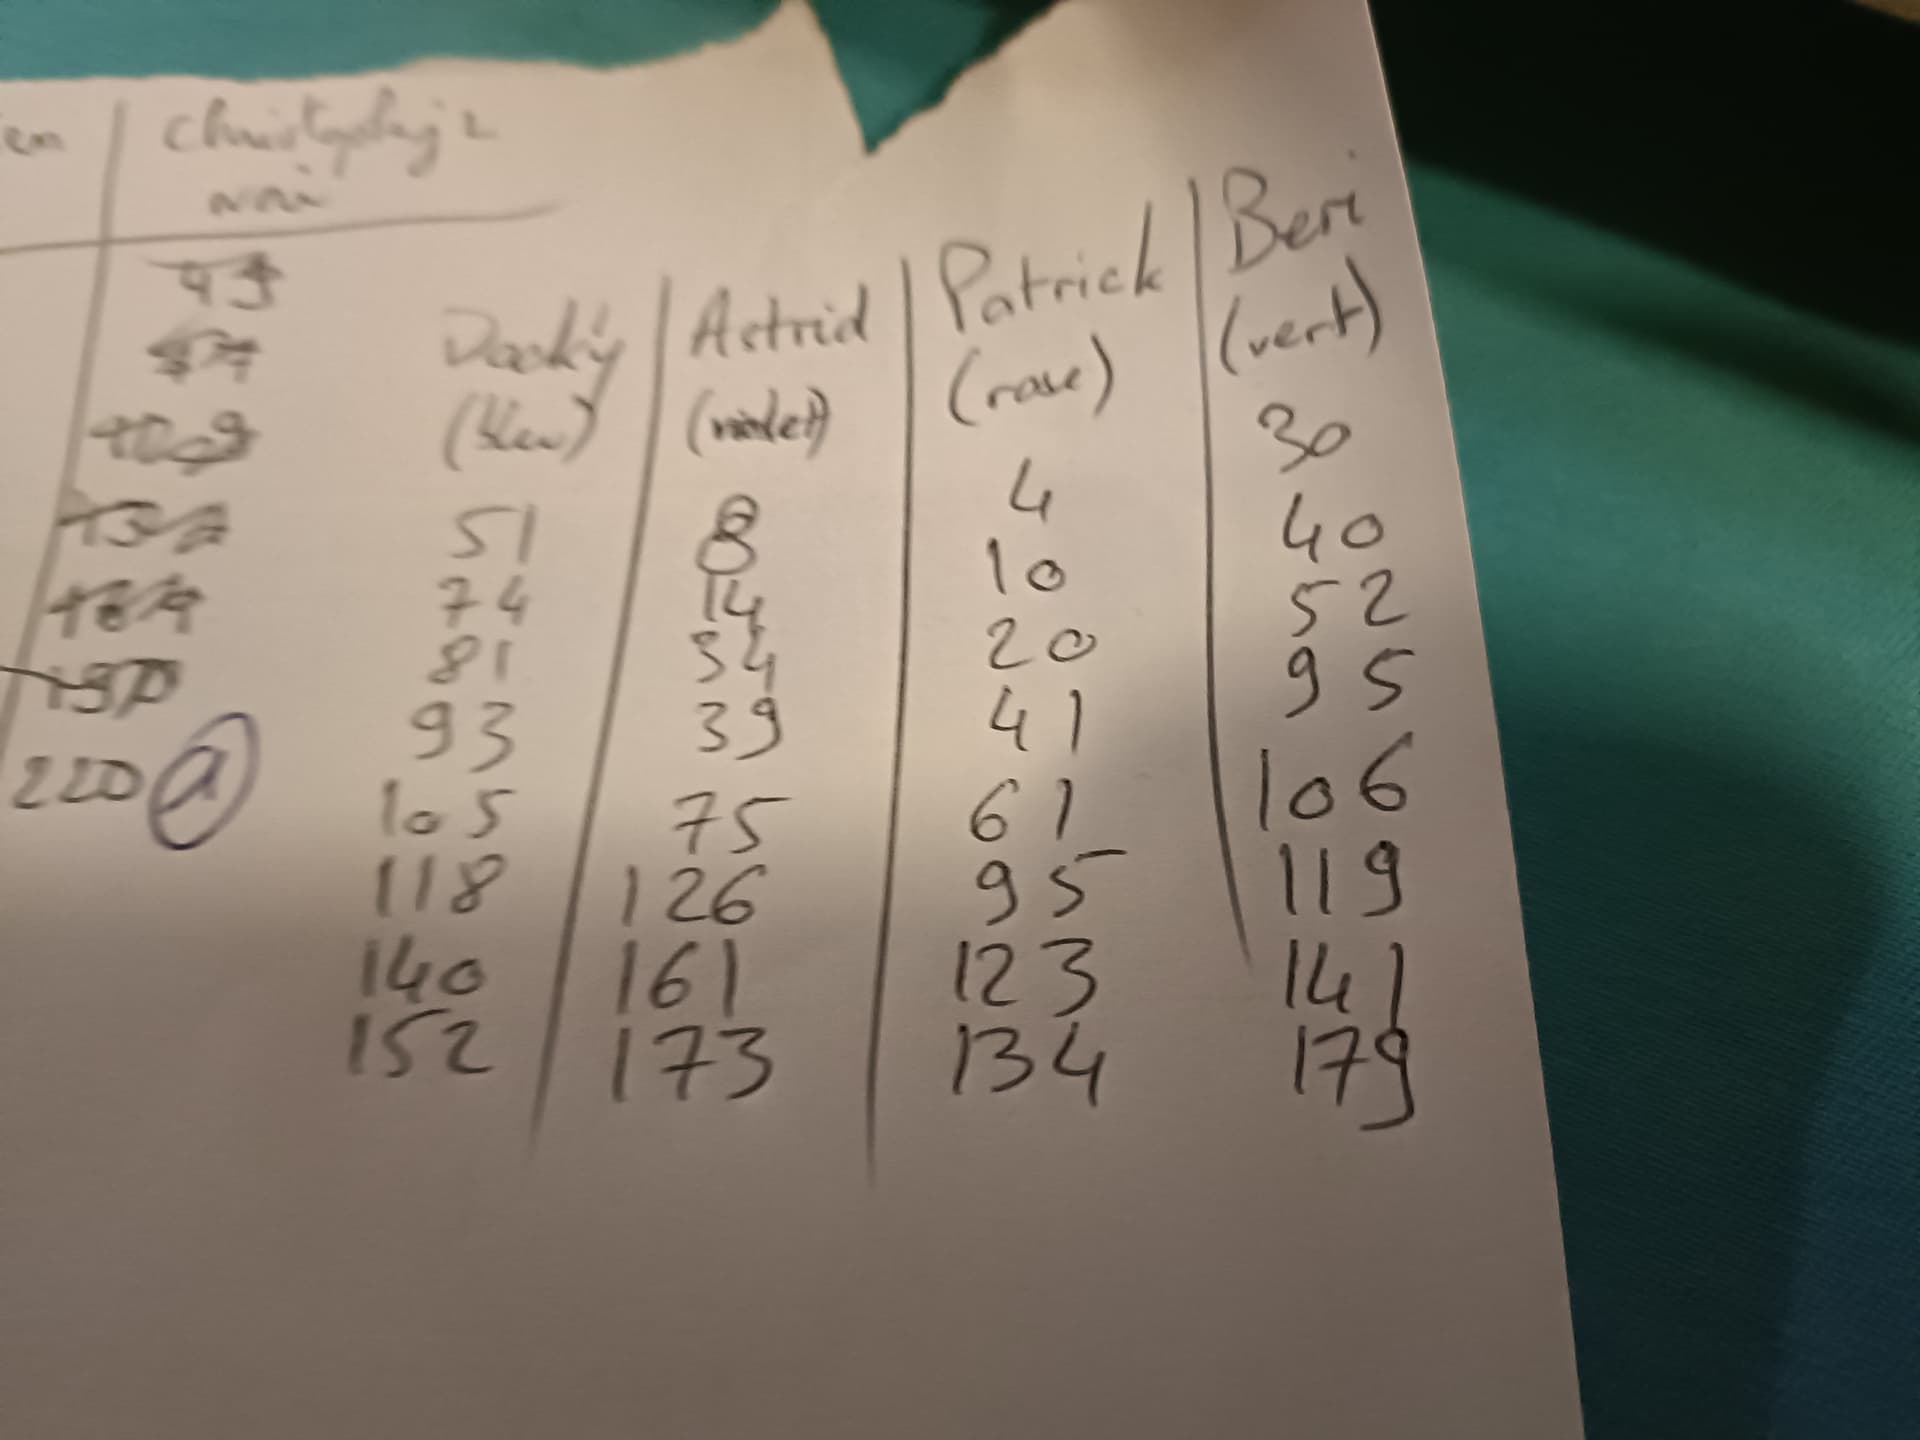 noir
49
220 a
Dacky | Astrid | Patrick | Beri
(bleu) | (violet) | (rose) | (vert)
51 | 8 | 4 | 30
74 | 14 | 10 | 40
81 | 34 | 20 | 52
93 | 39 | 41 | 95
105 | 75 | 61 | 106
118 | 126 | 95 | 119
140 | 161 | 123 | 141
152 | 173 | 134 | 179